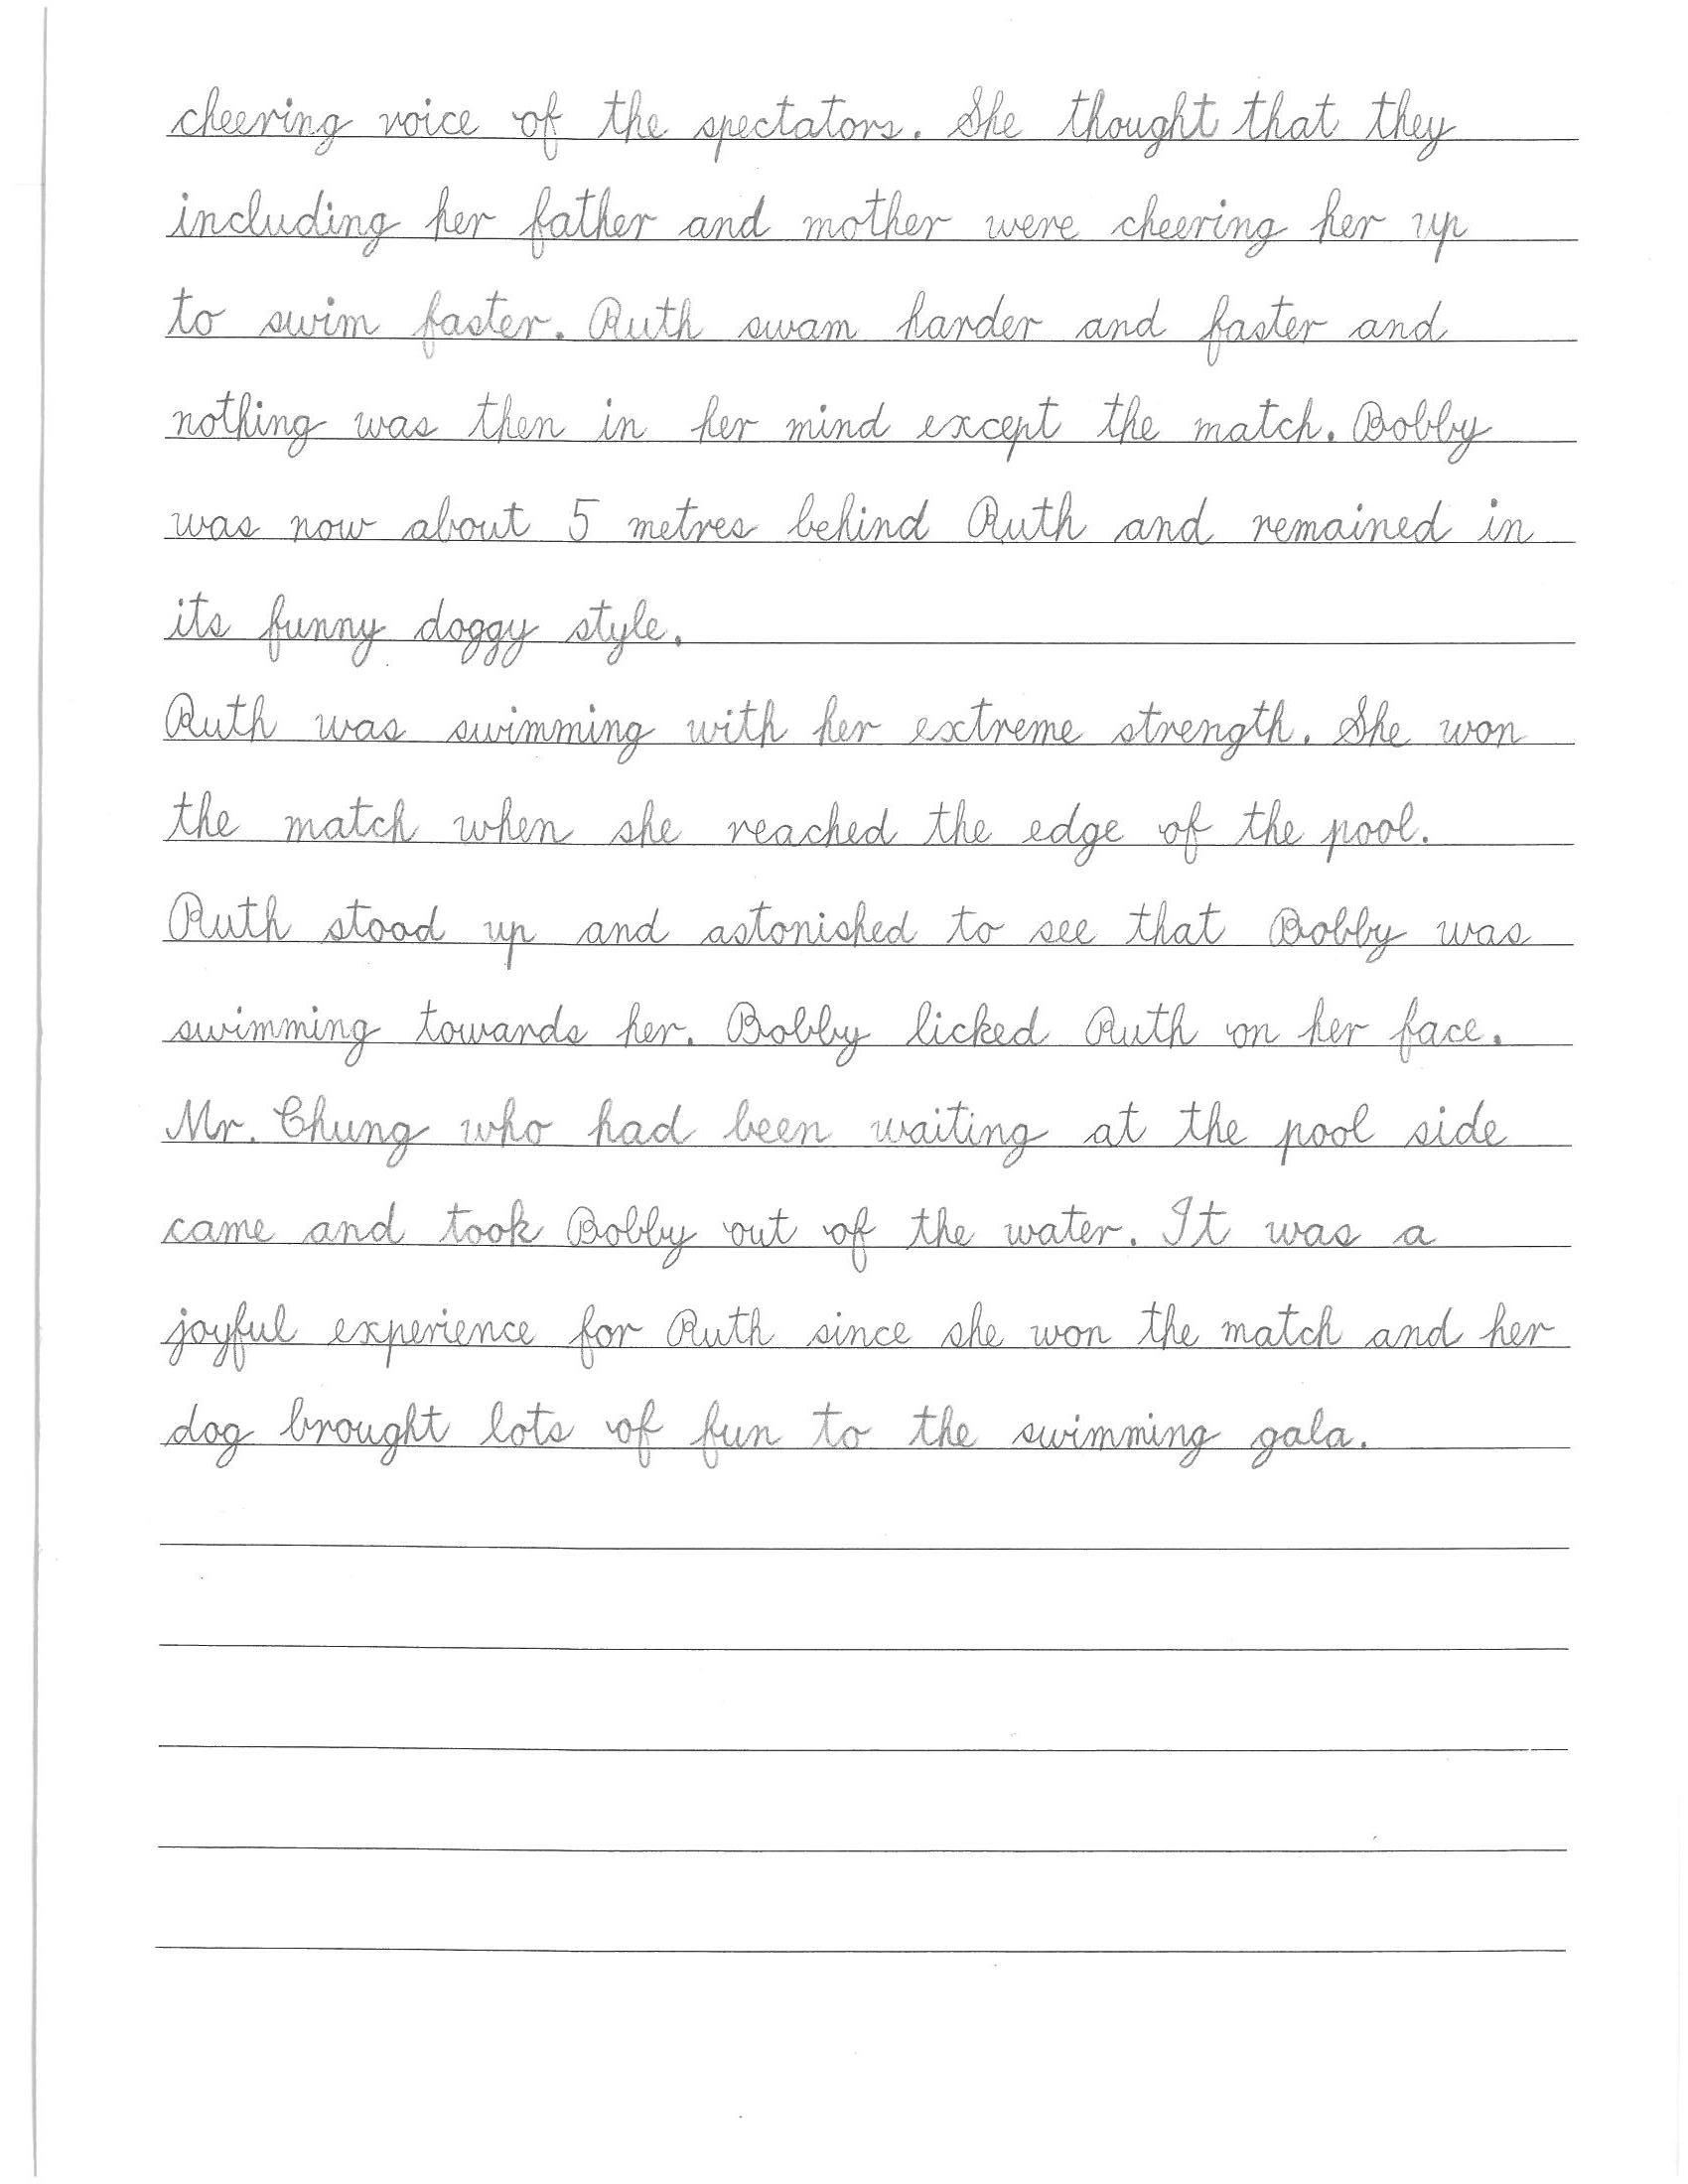 cheering voice of the spectators. She thought that they
including her father and mother were cheering her up
to swim faster. Ruth swam harder and faster and
nothing was then in her mind except the match. Bobby
was now about 5 metres behind Ruth and remained in
its funny doggy style.
Ruth was swimming with her extreme strength. She won
the match when she reached the edge of the pool.
Ruth stood up and astonished to see that Bobby was
swimming towards her. Bobby licked Ruth on her face.
Mr. Chung who had been waiting at the pool side
came and took Bobby out of the water. It was a
joyful experience for Ruth since she won the match and her
dog brought lots of fun to the swimming gala.